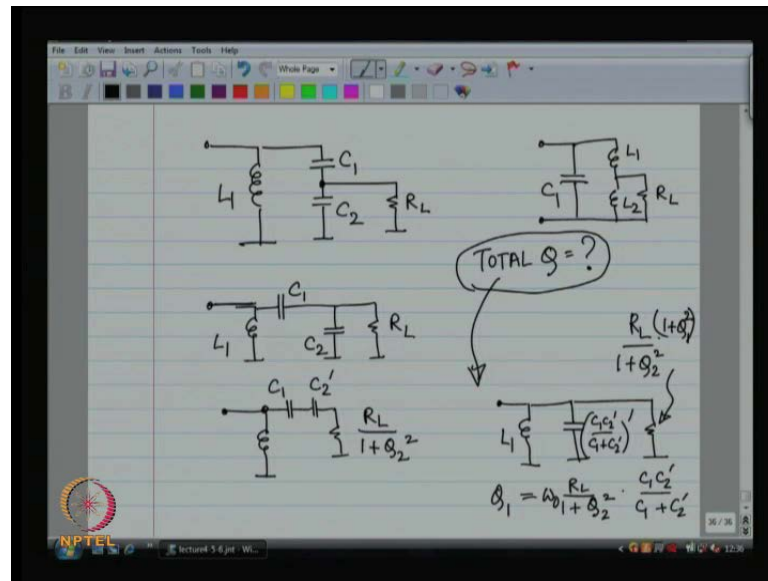 File Edit View Insert Actions Tools Help
Whole Page
B I
L1
C1
C2
RL
C1
L1
L2
RL
TOTAL Q = ?
L1
C1
C2
RL
RL (1+Q1²)
1+Q2²
C1 C2'
RL
1+Q2²
L1
(C1C2'/C1+C2')'
Q1 = ω0 RL/1+Q2² · C1C2'/C1+C2'
NPTEL
36/36
lecture4-5-6.jnt - Wi...
12:36